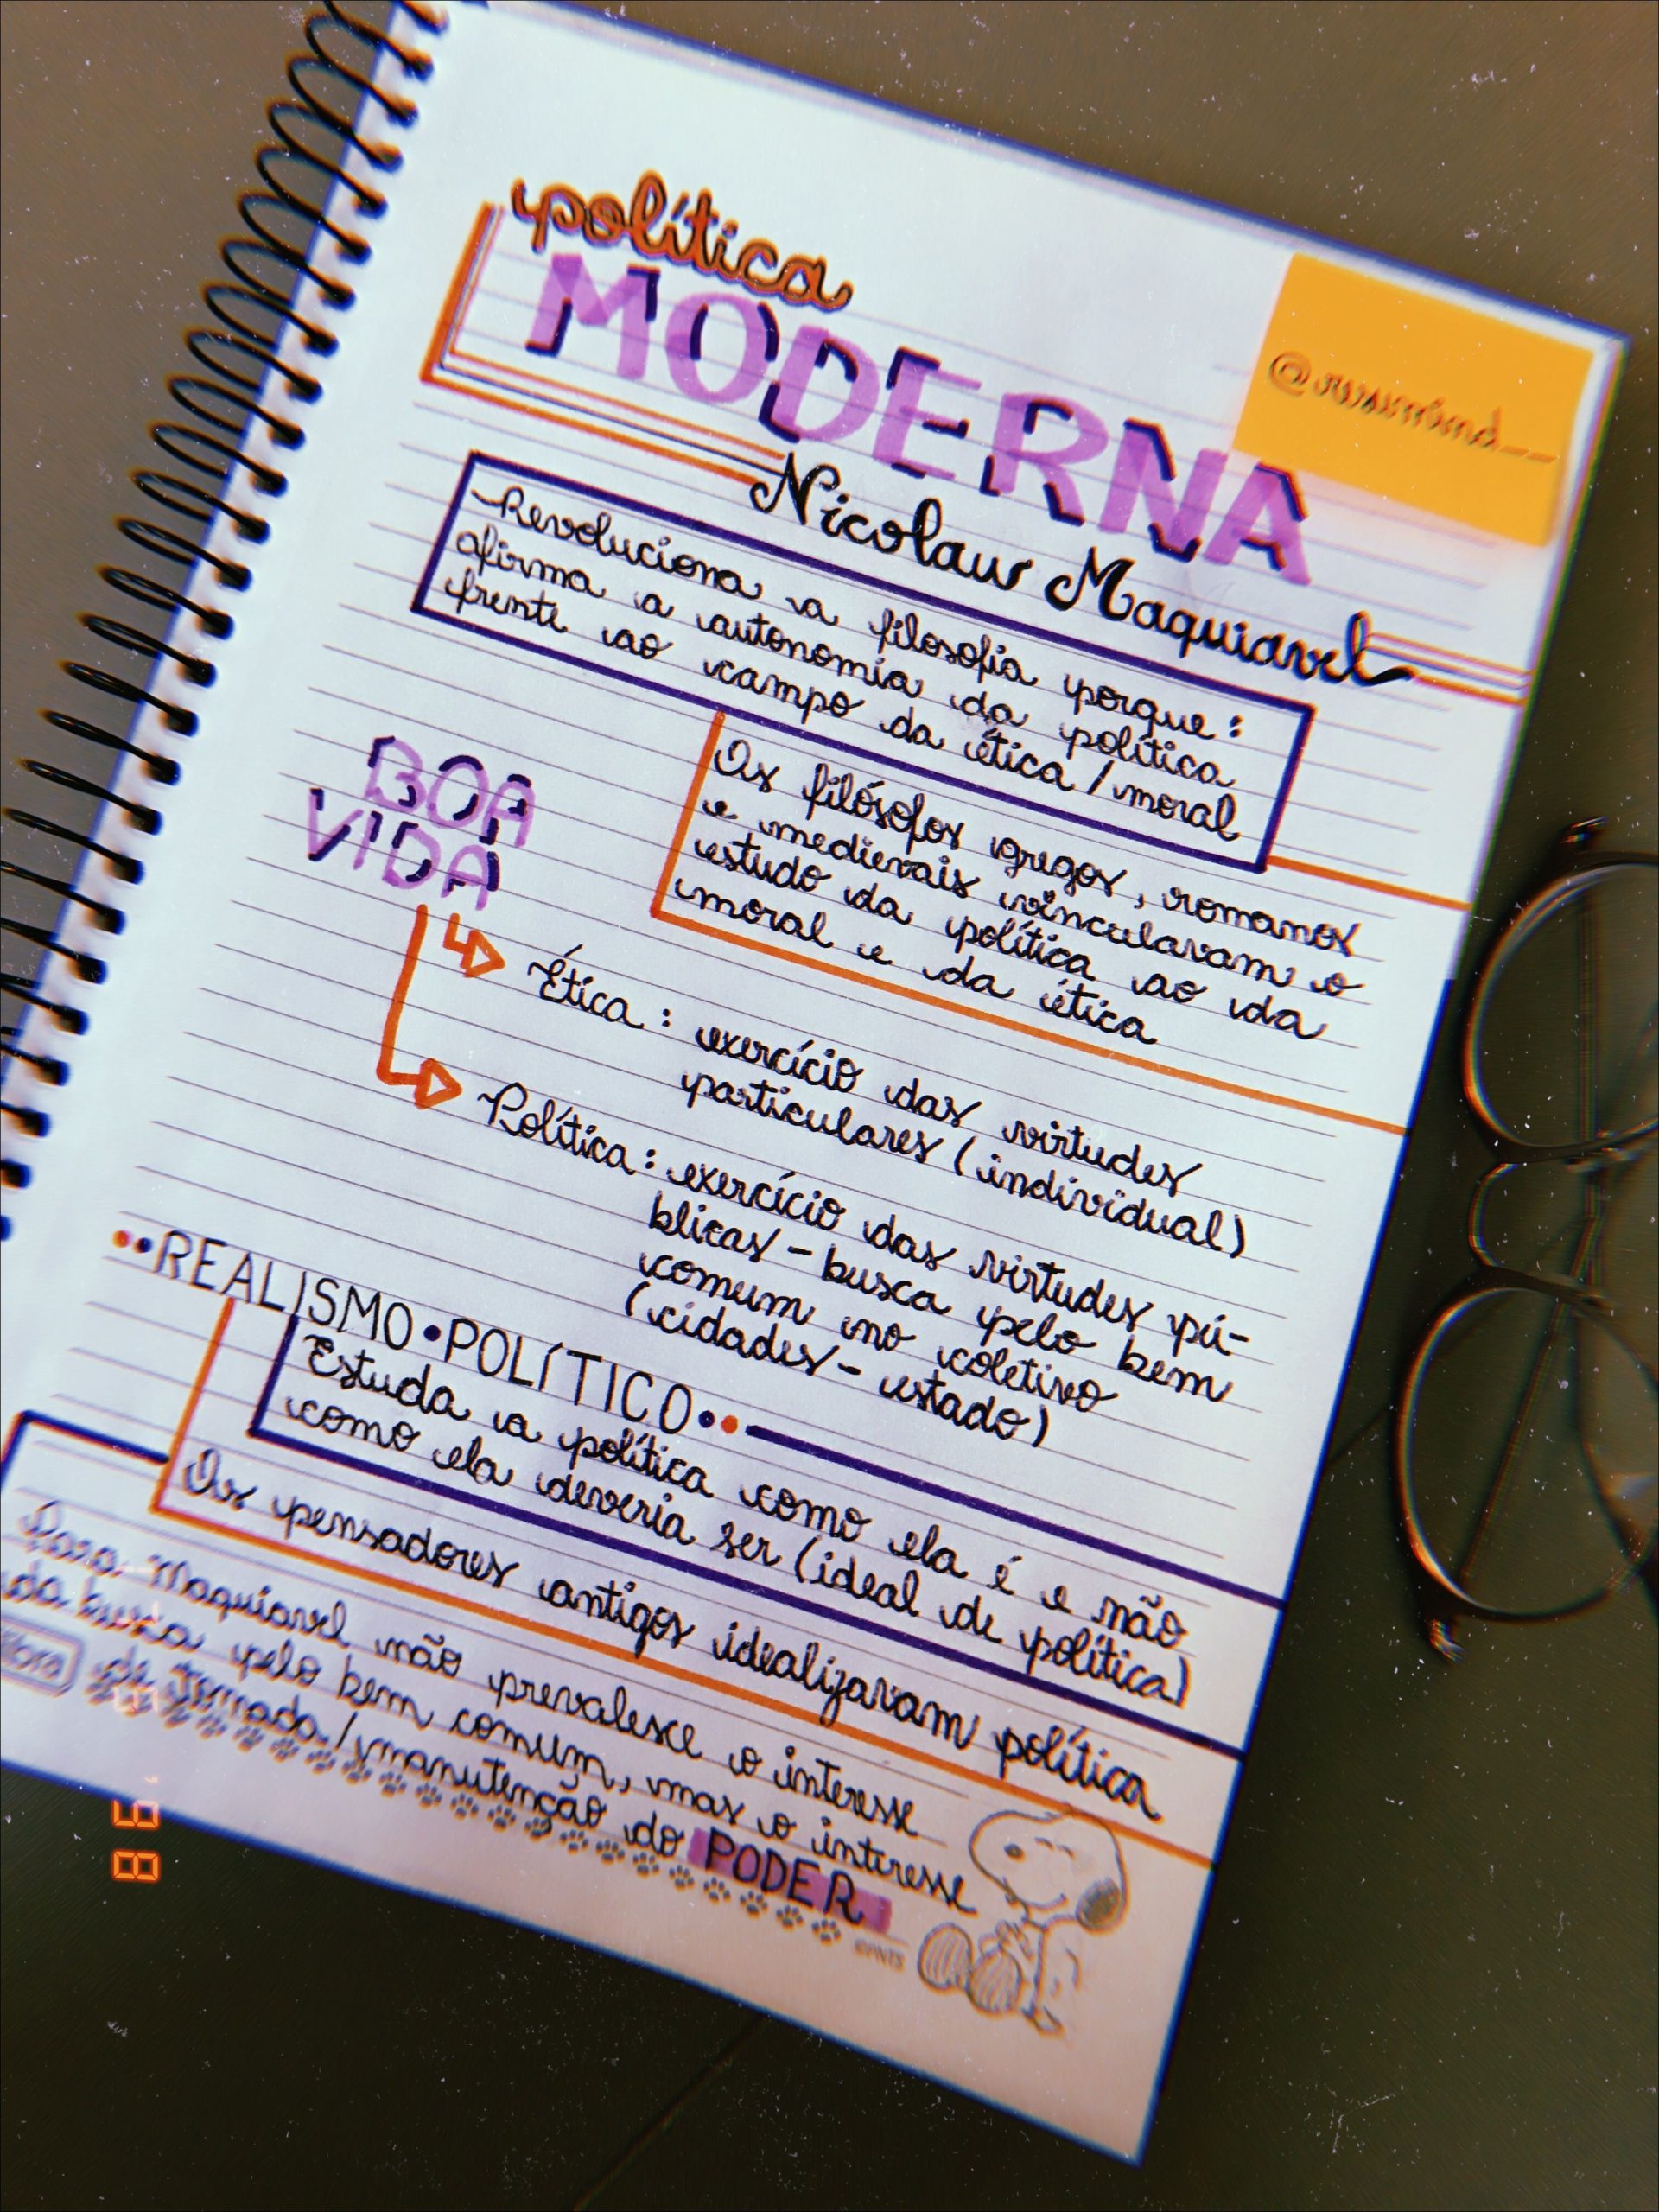 política
MODERNA
Nicolau Maquiavel
Revoluciona a filosofia porque:
afirma a autonomia da política
frente ao campo da ética / moral
Os filósofos gregos, romanos
e medievais vinculavam o
estudo da política ao da
moral e da ética
BOA
VIDA
Ética: exercício das virtudes
particulares (individual)
Política: exercício das virtudes pú-
blicas - busca pelo bem
comum no coletivo
(cidades - estado)
REALISMO • POLÍTICO
Estuda a política como ela é e não
como ela deveria ser (ideal de política)
Os pensadores antigos idealizavam política
Para Maquiavel não prevalesce o interesse
da busca pelo bem comum, mas o interesse
de tomada / manutenção do PODER